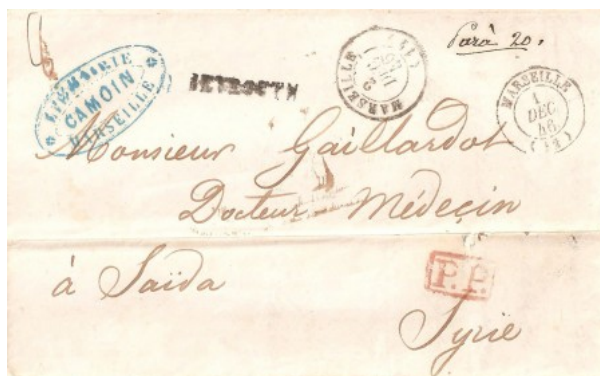 Parà 20.
LIBRAIRIE
CAMOIN
MARSEILLE
BEYROUTH
MARSEILLE
2
(12)
MARSEILLE
1
DEC
46
(12)
Monsieur Gaillardot
Docteur Médecin
à Saïda
P.P.
Syrie